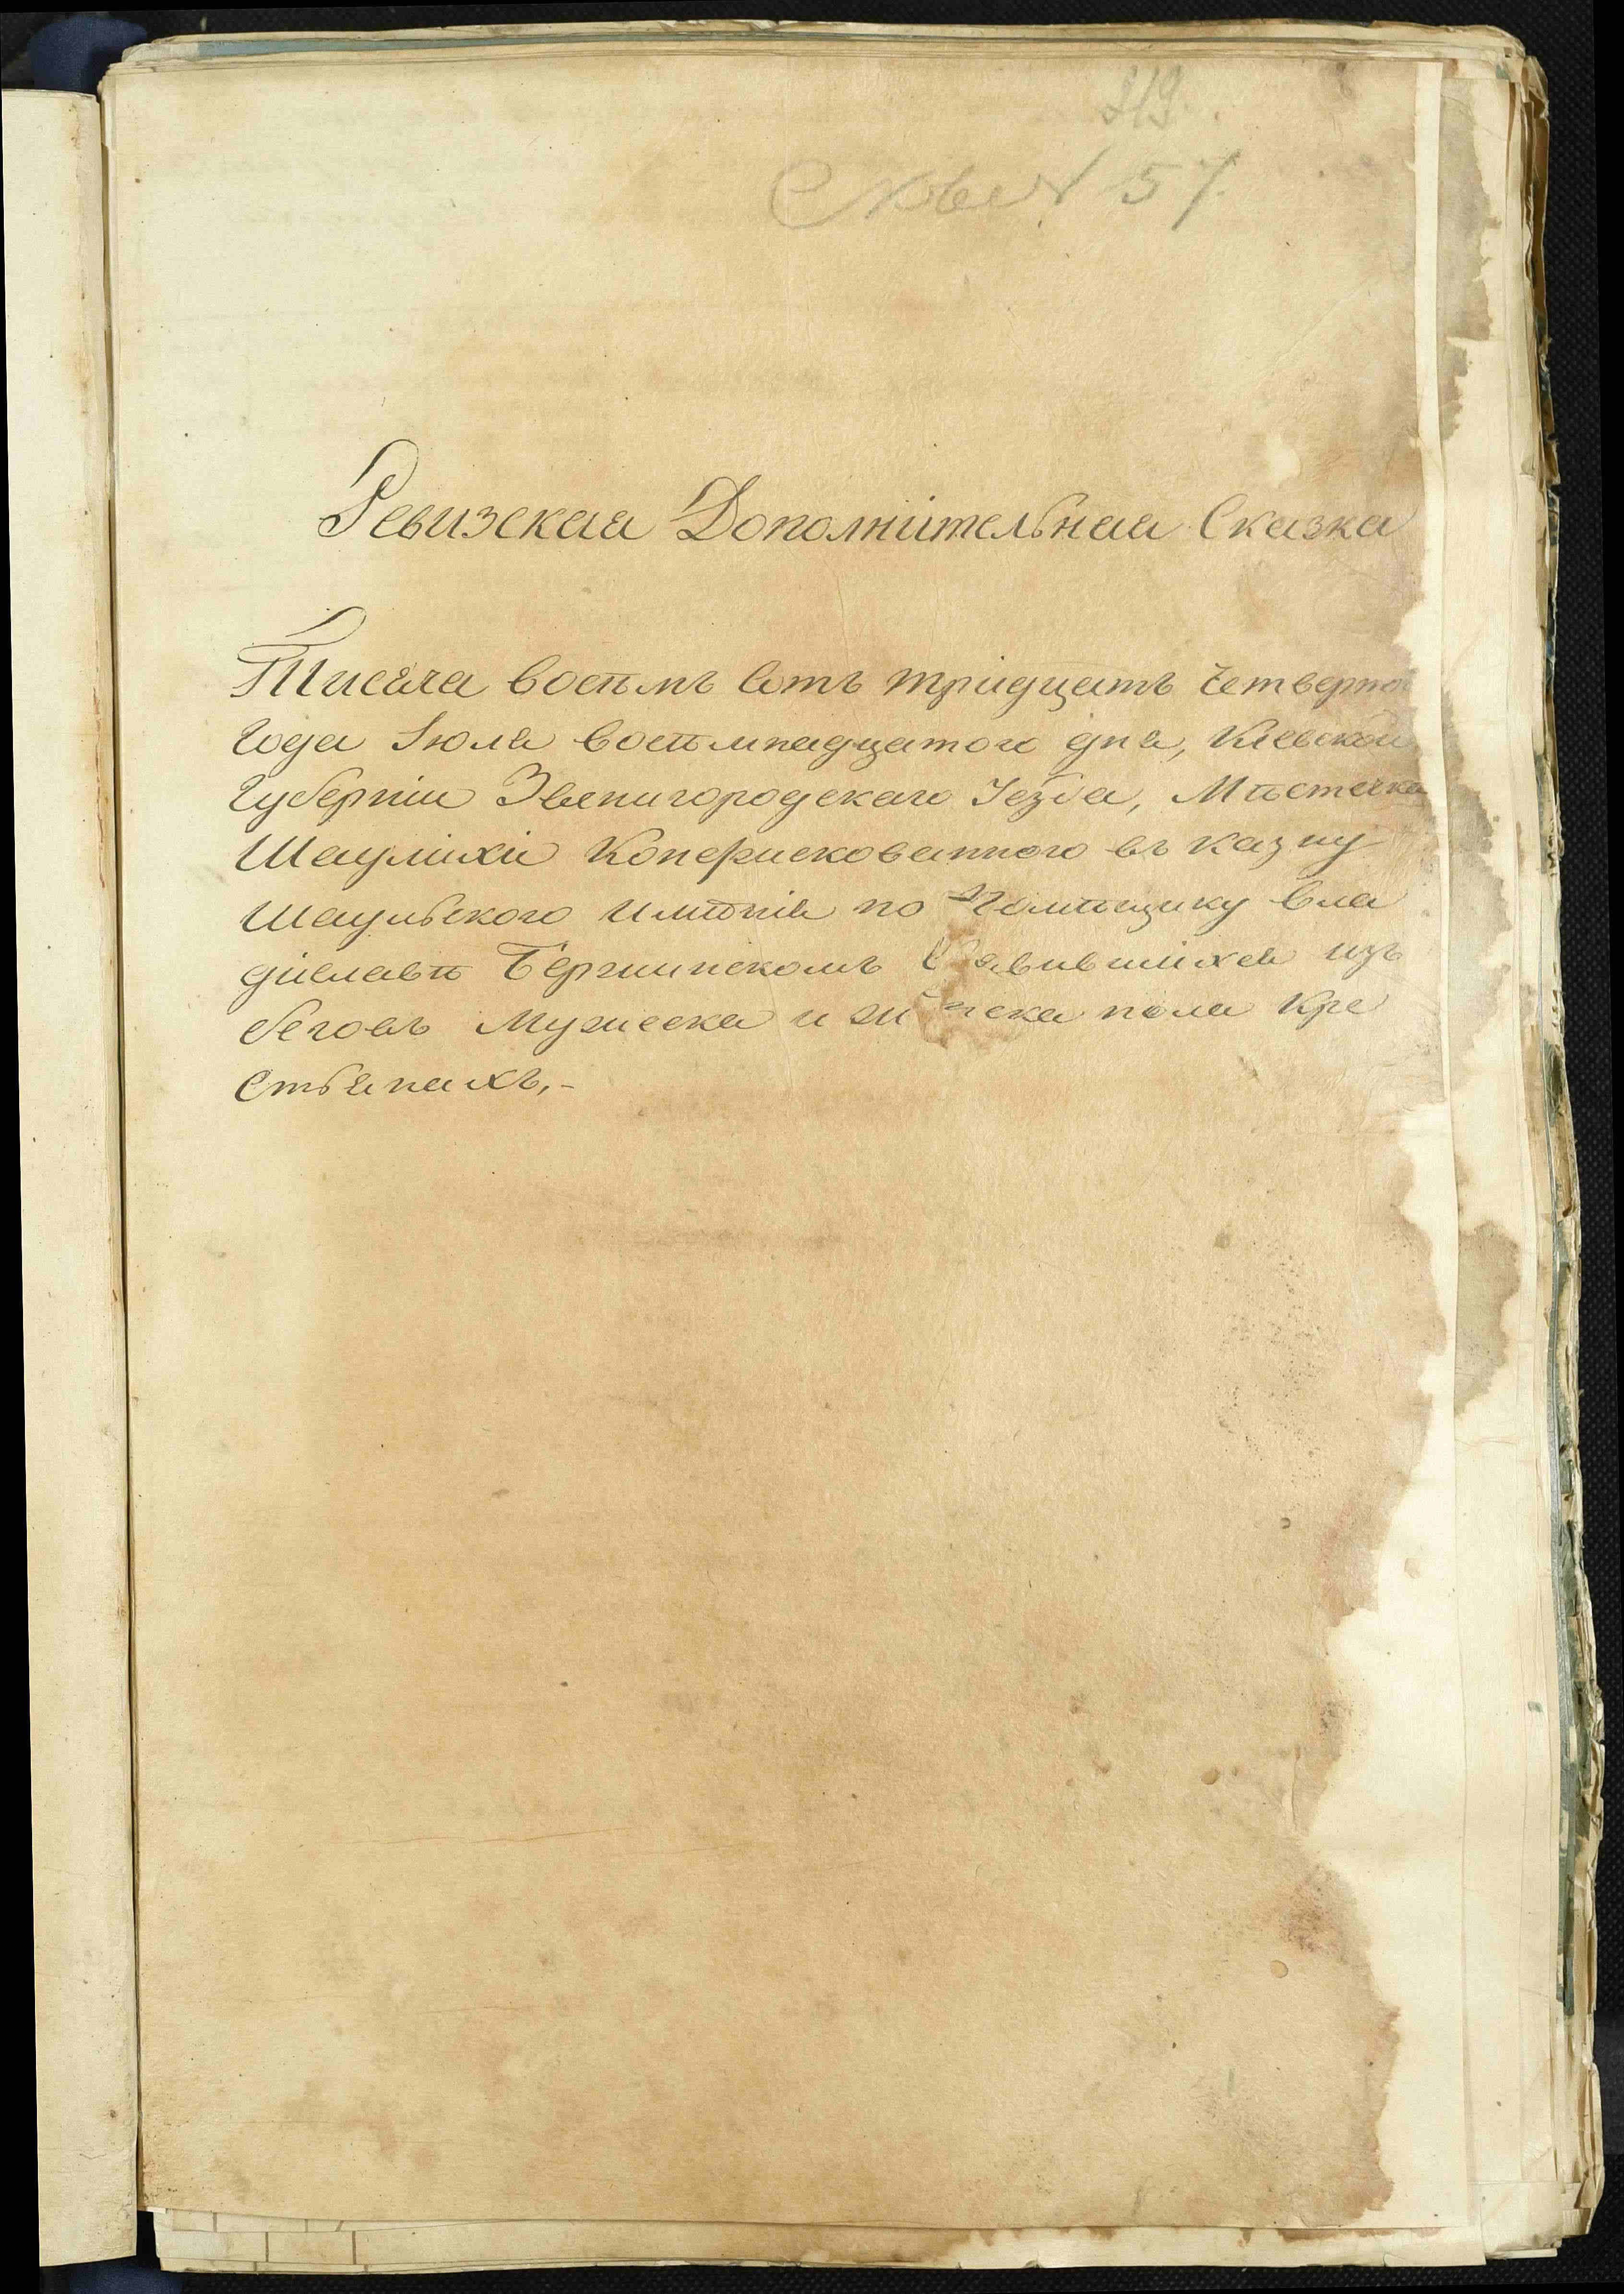 319.
57
Ревизская Дополнительная Сказка
Тисяча восѣмъ сотъ тридцать четверто
Года Іюля восѣмнадцатого дня, Кіевской
Губерніи Звенигородскаго Уезда, Мѣстечка
Шаулихи Конфискованного въ казну
Шаульского Имѣнія по Помѣщику Вла
диславѣ Бержинскомъ явившихся изъ
бегов Мужеска и пола Кре
стьянахъ,-